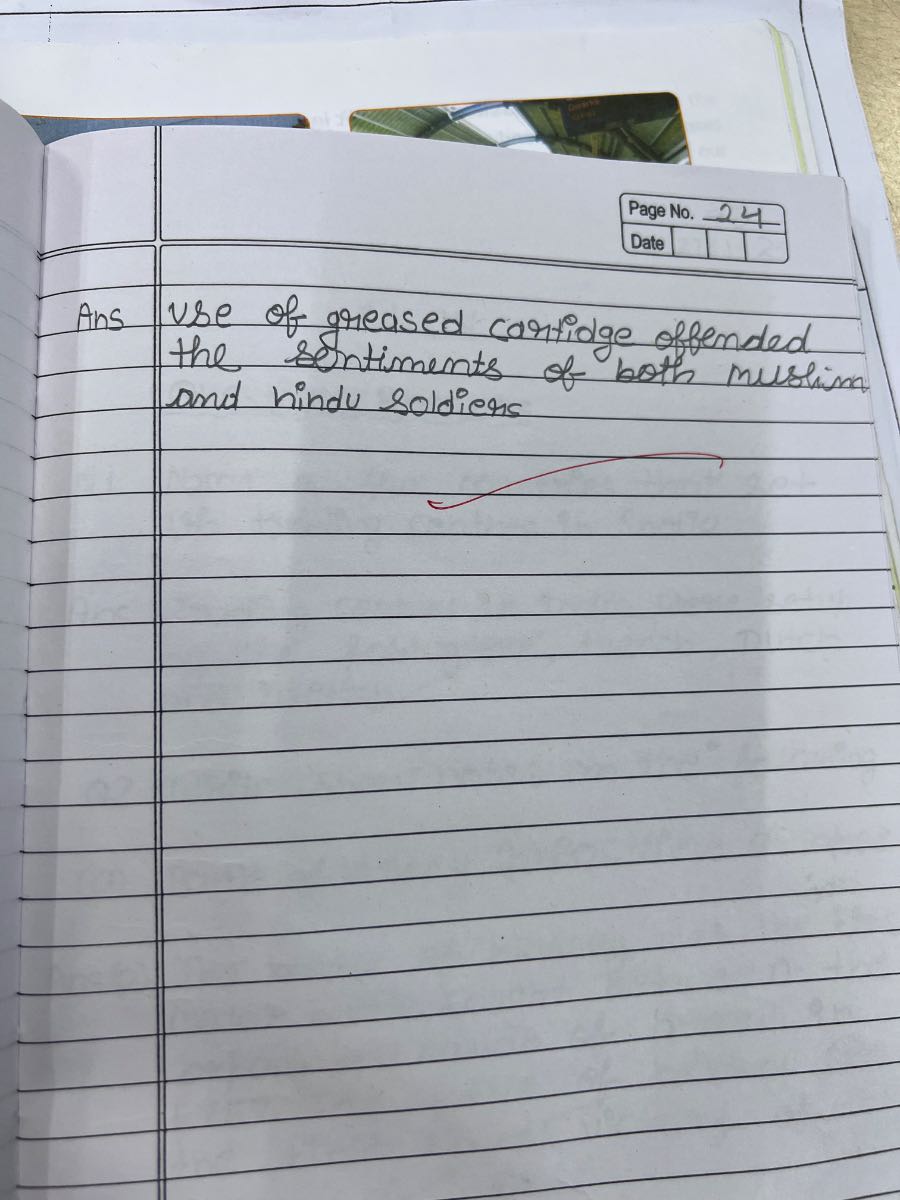 Page No. 24
Date
Ans use of greased cartidge offended
the sentiments of both muslim
and hindu soldiers